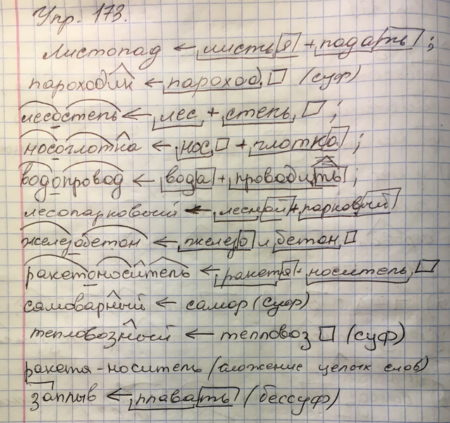 Упр. 173.
Листопад ← листья + падать;
пароходик ← пароход (суф)
лесостепь ← лес + степь;
носоглотка ← нос + глотка;
водопровод ← вода + проводить;
лесопарковый ← лесной + парковый
железобетон ← желез и бетон,
ракетоноситель ← ракетя - носитель,
самоварный ← самор (суф)
тепловозный ← тепловоз (суф)
ракетя - носитель (сложение целых слов)
заплыв ← плавать (бессуф)